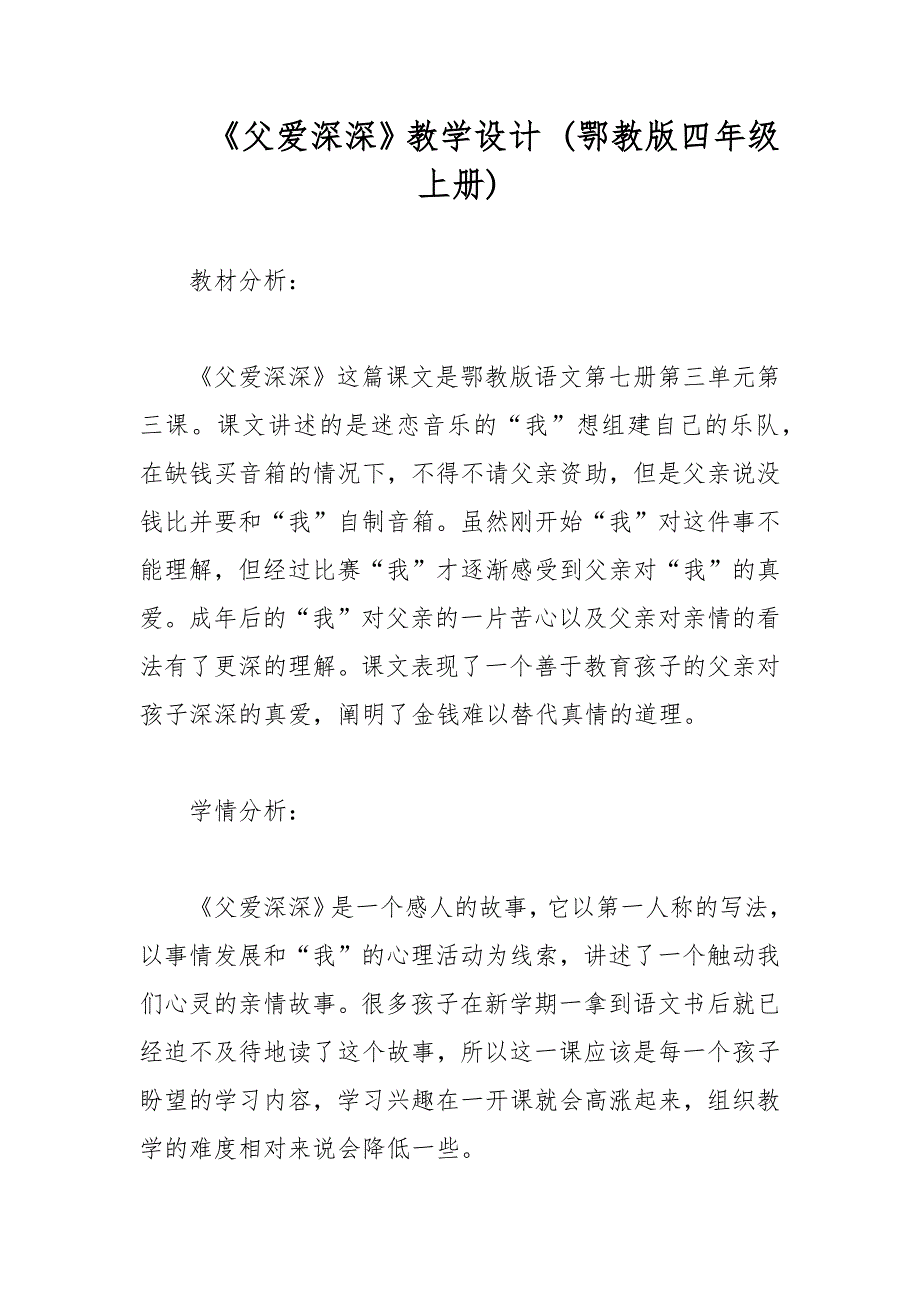 《父爱深深》教学设计 (鄂教版四年级
上册)
教材分析：
《父爱深深》这篇课文是鄂教版语文第七册第三单元第
三课。课文讲述的是迷恋音乐的“我”想组建自己的乐队，
在缺钱买音箱的情况下，不得不请父亲资助，但是父亲说没
钱比并要和“我”自制音箱。虽然刚开始“我”对这件事不
能理解，但经过比赛“我”才逐渐感受到父亲对“我”的真
爱。成年后的“我”对父亲的一片苦心以及父亲对亲情的看
法有了更深的理解。课文表现了一个善于教育孩子的父亲对
孩子深深的真爱，阐明了金钱难以替代真情的道理。
学情分析：
《父爱深深》是一个感人的故事，它以第一人称的写法，
以事情发展和“我”的心理活动为线索，讲述了一个触动我
们心灵的亲情故事。很多孩子在新学期一拿到语文书后就已
经迫不及待地读了这个故事，所以这一课应该是每一个孩子
盼望的学习内容，学习兴趣在一开课就会高涨起来，组织教
学的难度相对来说会降低一些。